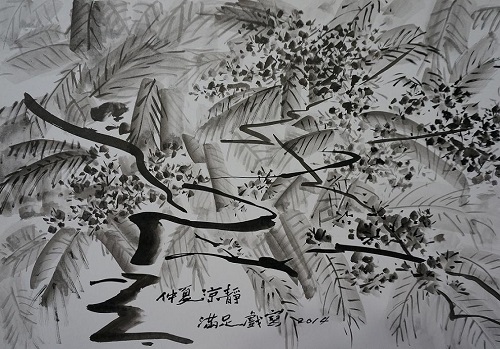 仲夏涼靜
滿足戲寫 2014